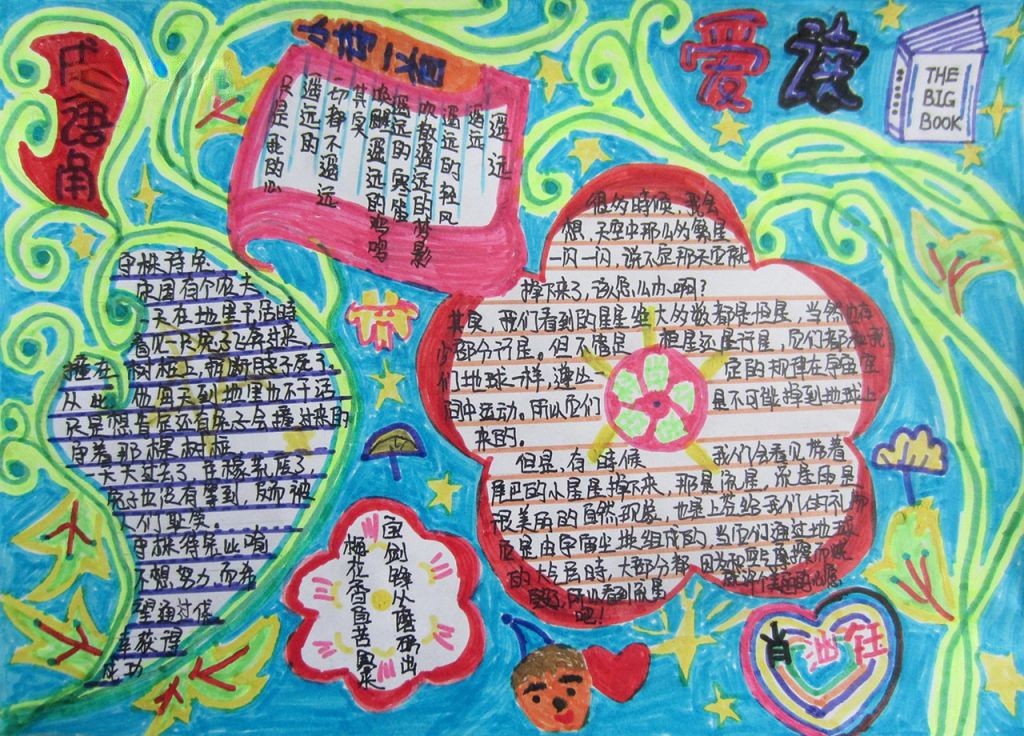 爱读
THE
BIG
BOOK
小诗一首
遥远
遥远
遥远的轻风
吹散遥远的梦影
遥远的寒笛
唤醒遥远的鸡鸣
其实
一切都不遥远
遥远的
只是我的心
成语角
守株待兔
宋国有个农夫
一天在地里干活時
看见一只兔子飞奔过来
撞在树桩上,
死了。
从此,他每天到地里也不干活
只是想着是还有兔子会撞过来的
守着那棵树桩
天天过去了,
兔子也没有等到,反而被
人们耻笑。
守株待兔比喻
不想努力,而希
望通过侥
幸获得
成功
很多時候,我会
想,天空中那么多繁星
一闪一闪,说不定那天空就
掉下来了,该怎么办啊?
其实,我们看到的星星绝大多数都是恒星,当然也有
少部分行星。但不管是恒星还是行星,它们都和我
们地球一样,遵从一定的规律在宇宙空
间中运动。所以它们是不可能掉到地球上
来的。
但是,有時候我们会看见拖着
尾巴的小星星掉下来,那是流星,流星雨是
很美丽的自然现象,也是上苍给我们的礼
而是由宇宙尘埃组成的,当它们通过地球
的大气层時,大部分都因为和空气摩擦而
吧!
宝剑锋从磨砺出
梅花香自苦寒来
肖
钰